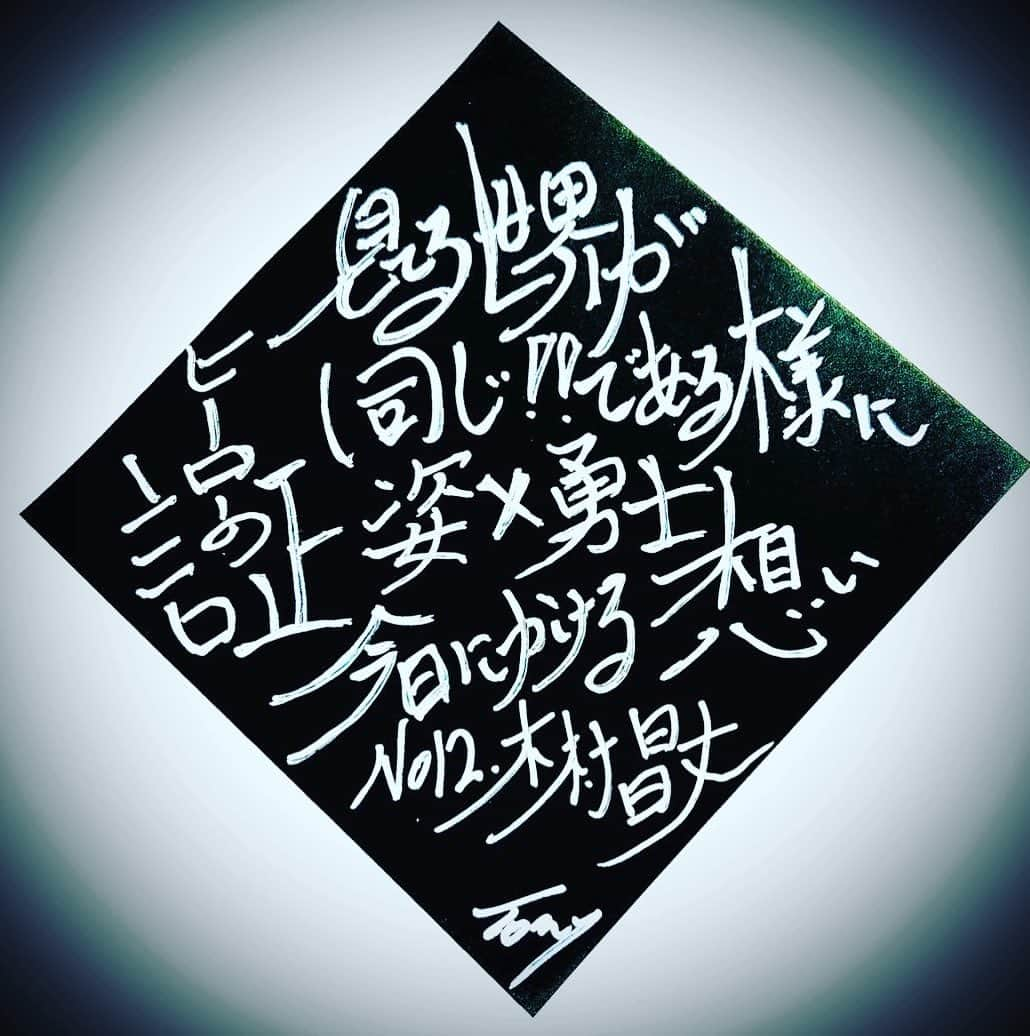 見てる世界が
同じ!!である様に
姿×勇士
今日にかける想い
No12.木村昌丈
Tony